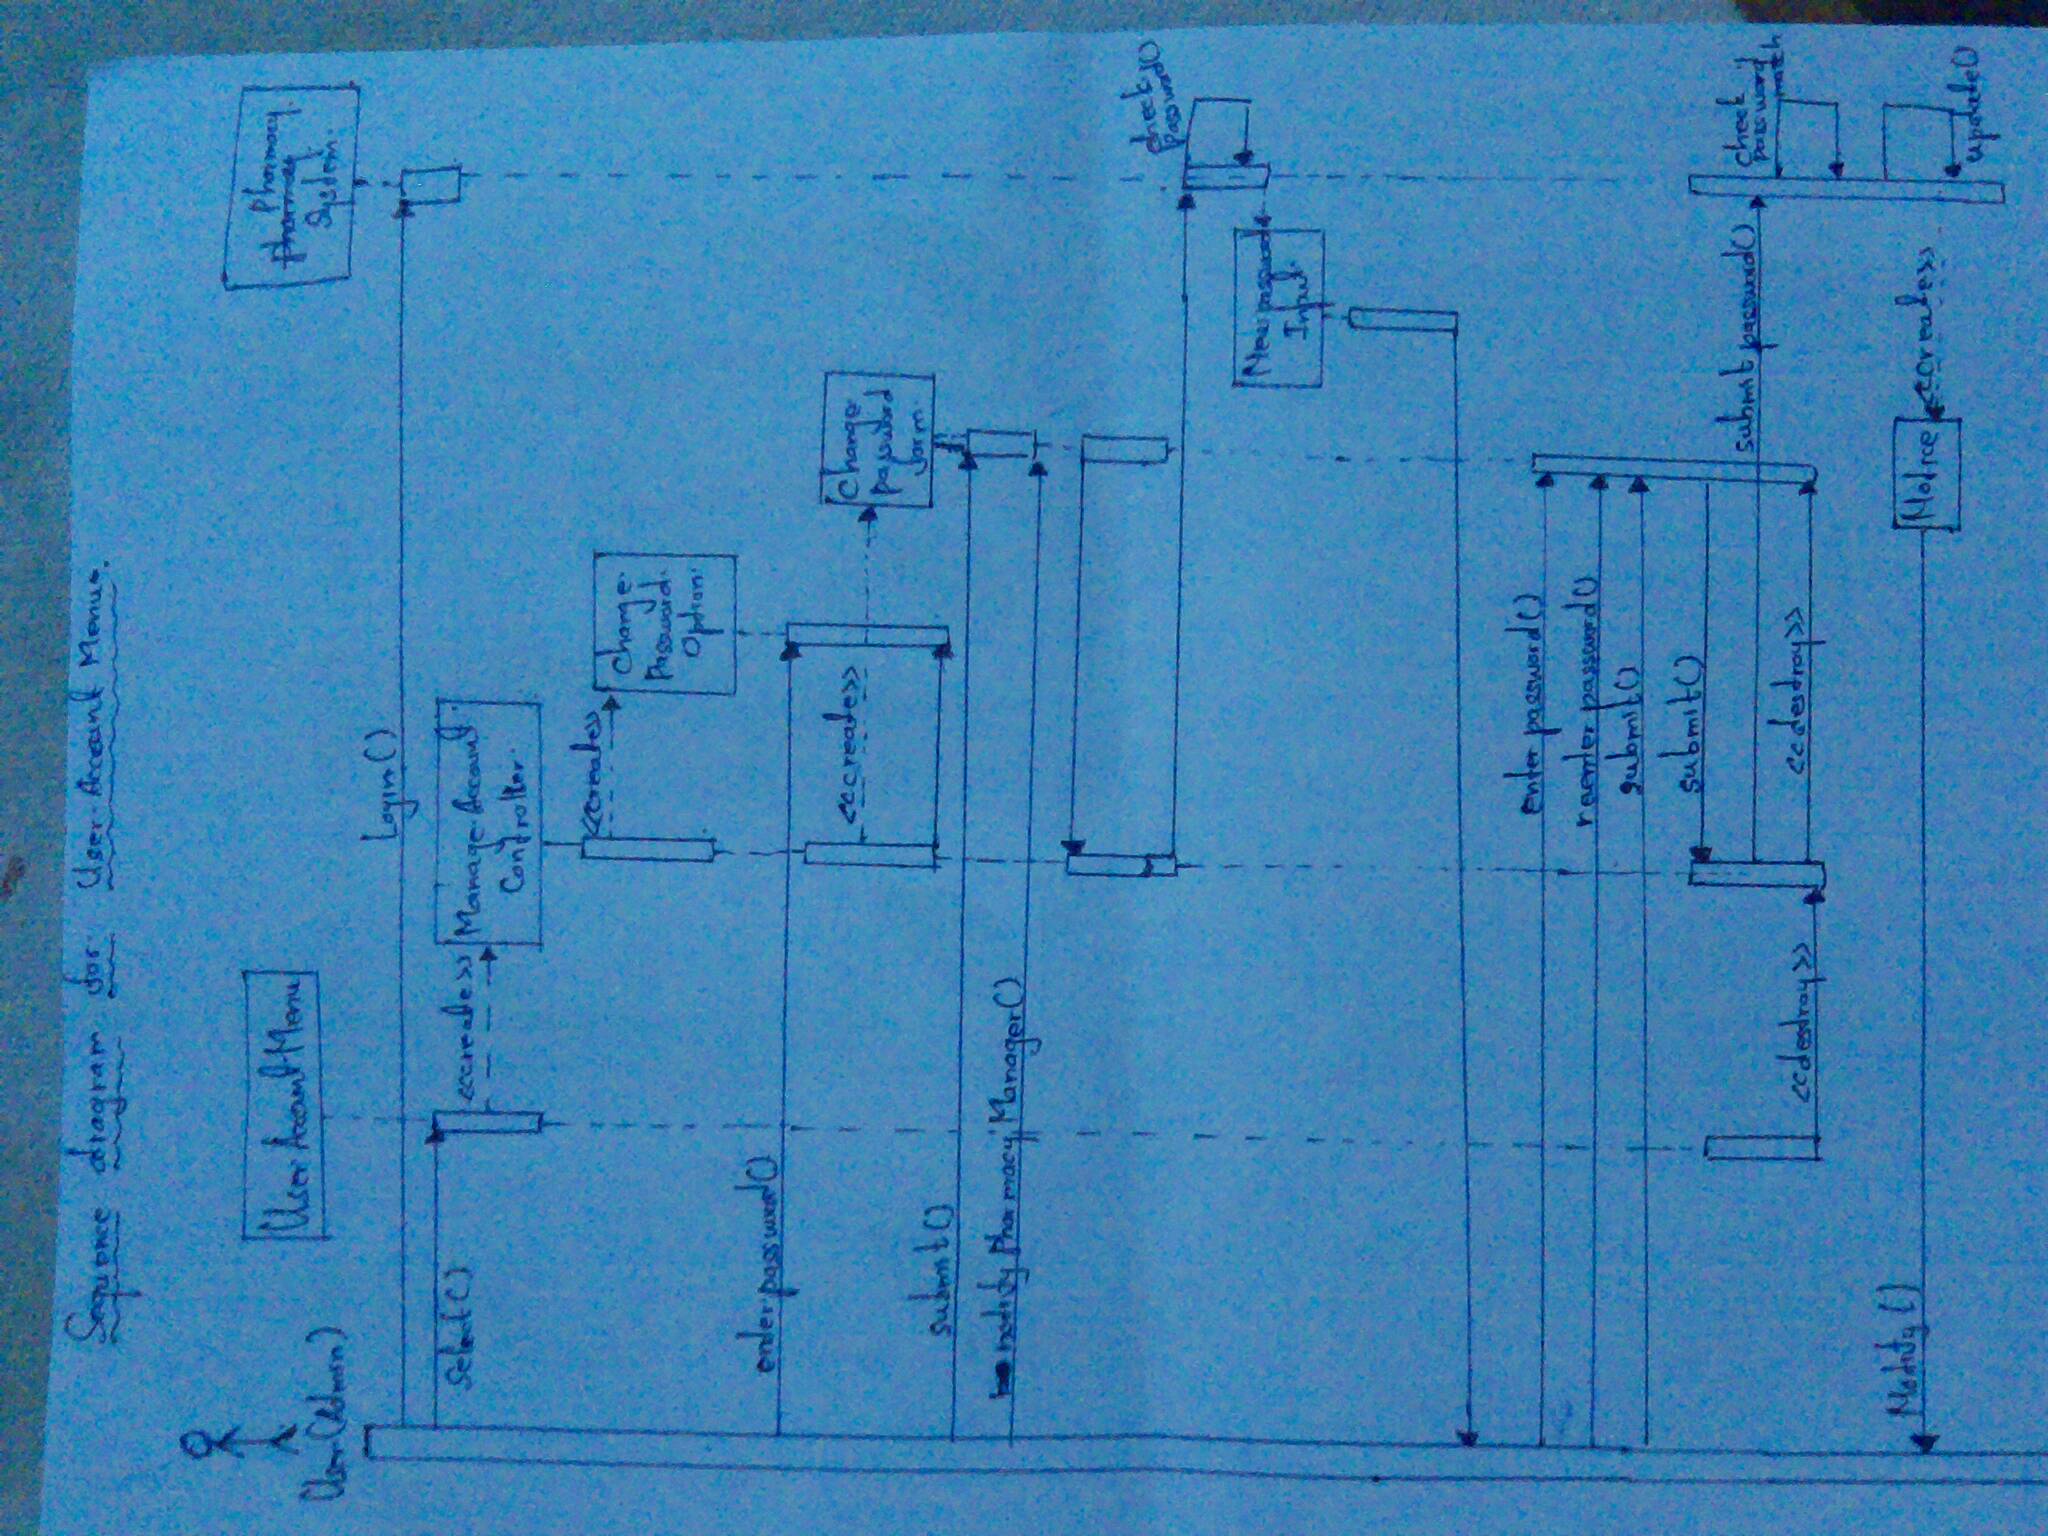 Sequence diagram for User Account Menu.
User (Admin)
User Account Menu
Pharmacy
pharmacy
System.
Login()
Select()
<<create>>
Manage Account
Controller.
<<create>>
Change
Password
Option.
enter password()
<<create>>
Change
password
form.
submit()
notify Pharmacy Manager()
check
Password()
New password
Input
enter password()
reenter password()
submit()
submit()
submit password()
check
password
match
<<destroy>>
<<destroy>>
Notify()
Notice
<<create>>
update()